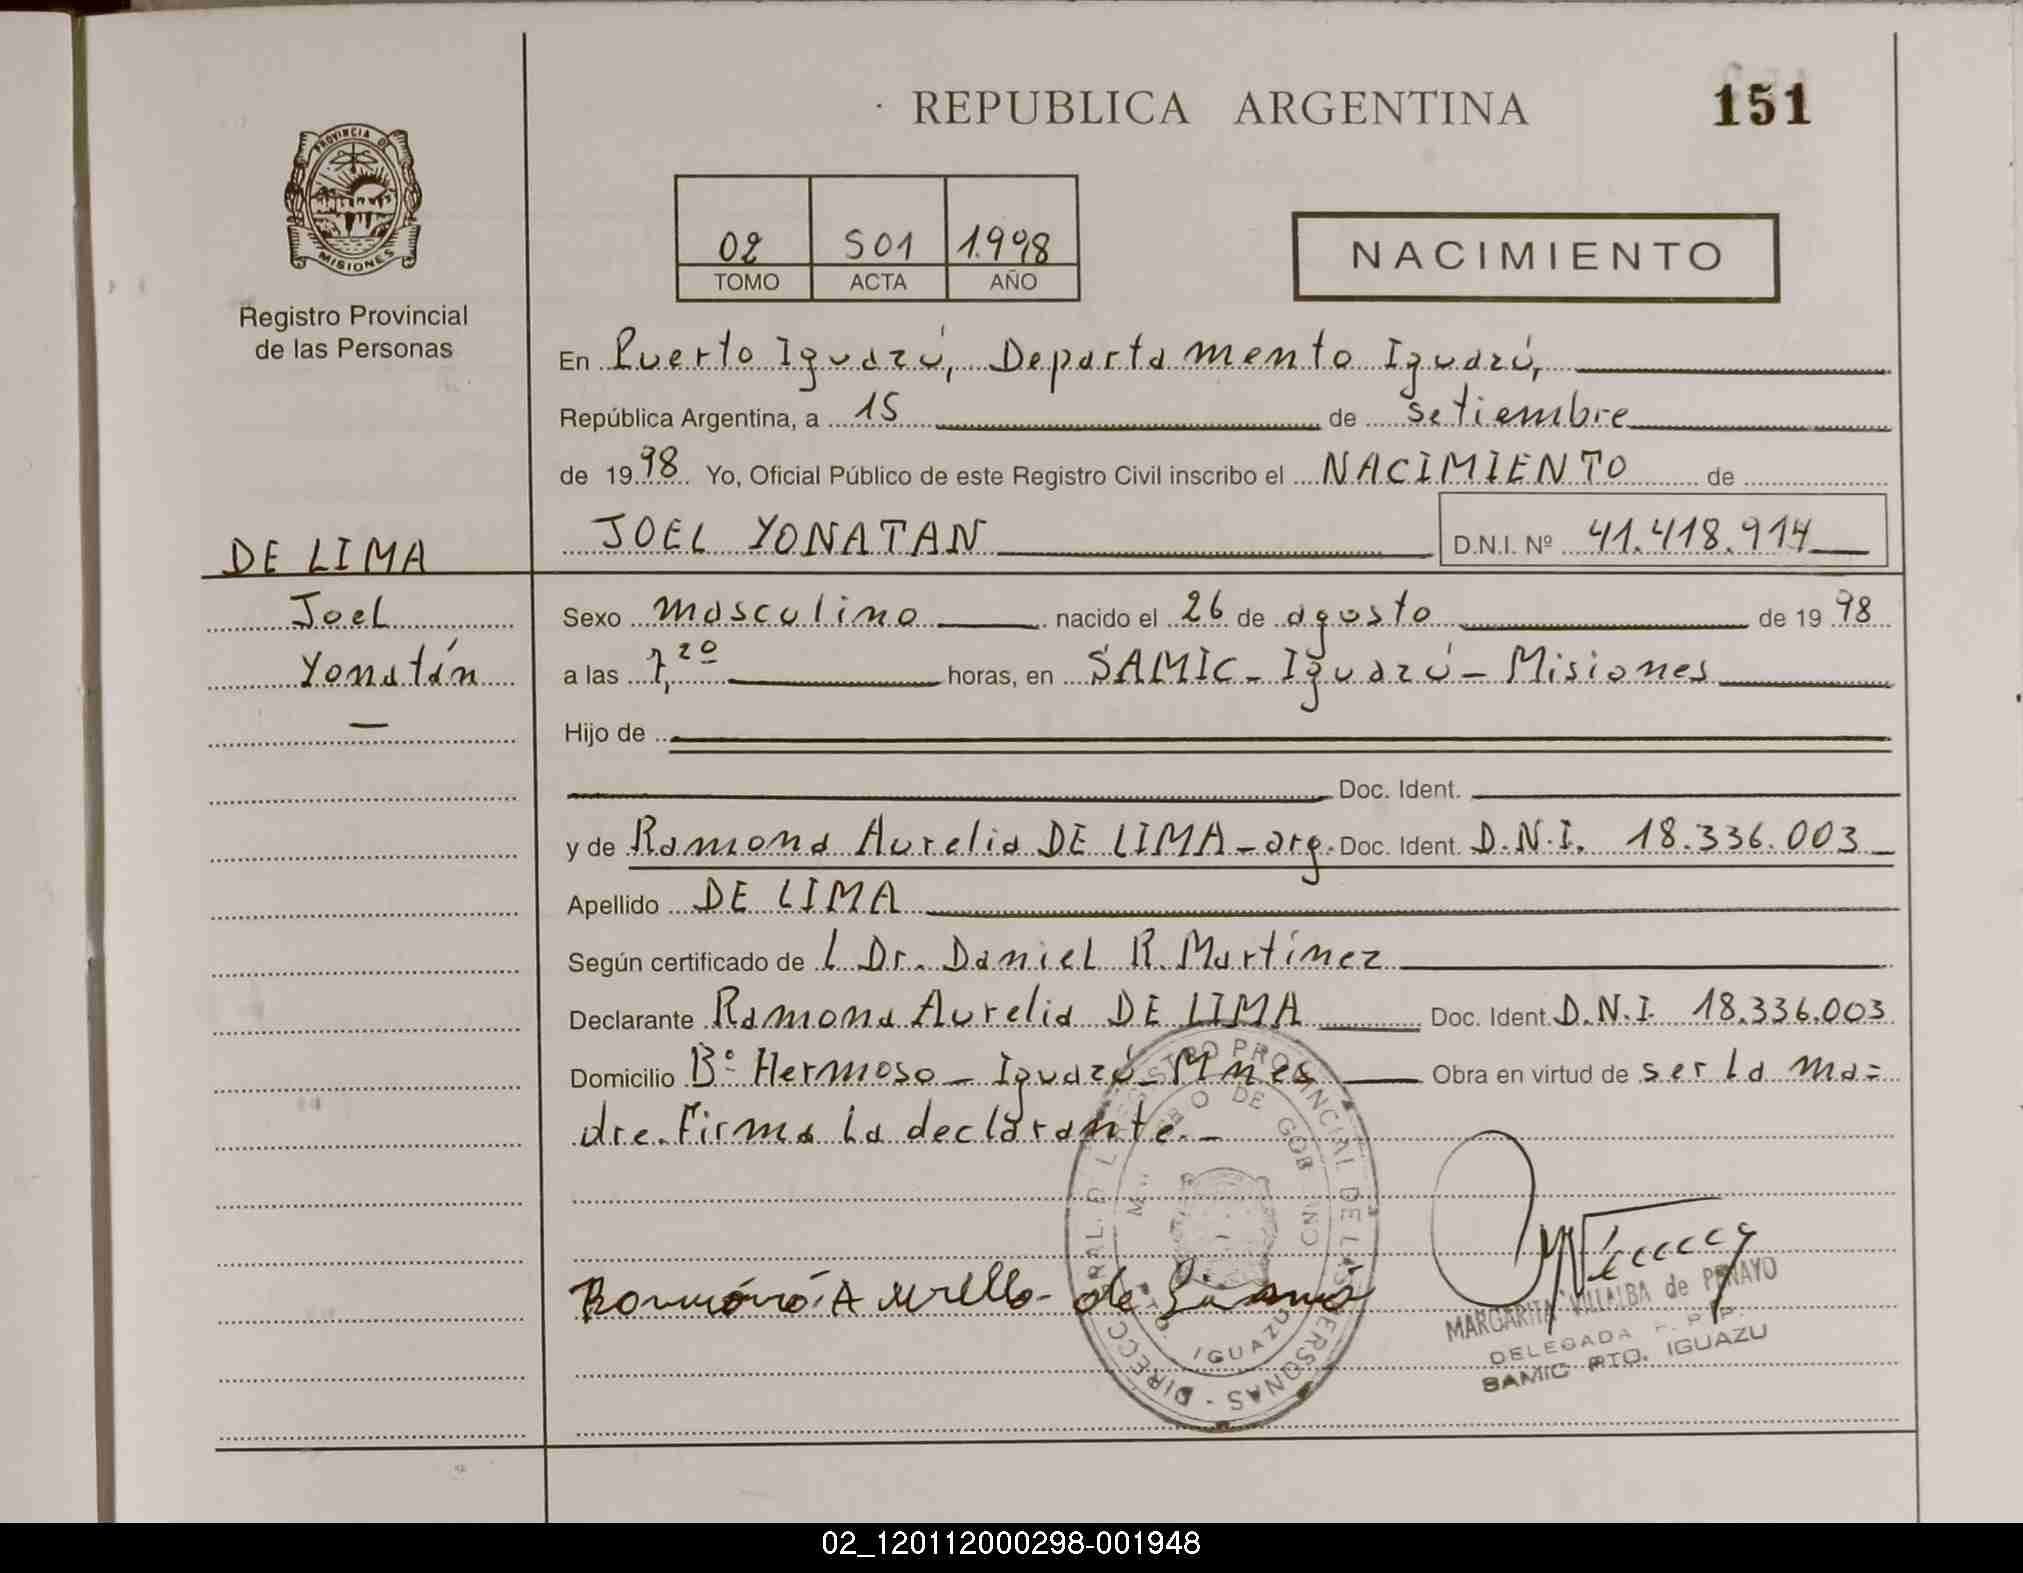 REPUBLICA ARGENTINA
151
PROVINCIA DE
MISIONES
Registro Provincial
de las Personas
02 S01 1.998
TOMO ACTA AÑO
NACIMIENTO
En Puerto Iguazú, Departamento Iguazú,
República Argentina, a 15 de setiembre
de 1998 Yo, Oficial Público de este Registro Civil inscribo el NACIMIENTO de
JOEL YONATAN D.N.I. Nº 41.418.914
DE LIMA
Joel
Yonatán
—
Sexo masculino nacido el 26 de agosto de 1998
a las 7,20 horas, en SAMIC - Iguazú - Misiones
Hijo de
Doc. Ident.
y de Ramona Aurelia DE LIMA - arg. Doc. Ident. D.N.I. 18.336.003
Apellido DE LIMA
Según certificado de l Dr. Daniel R. Martínez
Declarante Ramona Aurelia DE LIMA Doc. Ident. D.N.I. 18.336.003
Domicilio Bº Hermoso - Iguazú - Mnes Obra en virtud de ser la ma=
dre. Firma la declarante.-
DIRECC GRAL. DEL REGISTRO PROVINCIAL DE LAS PERSONAS -
DE GOBIERNO
PTO. IGUAZU
MARGARITA VILLALBA de PANAYO
DELEGADA R.P.P.
SAMIC PTO. IGUAZU
02_120112000298-001948